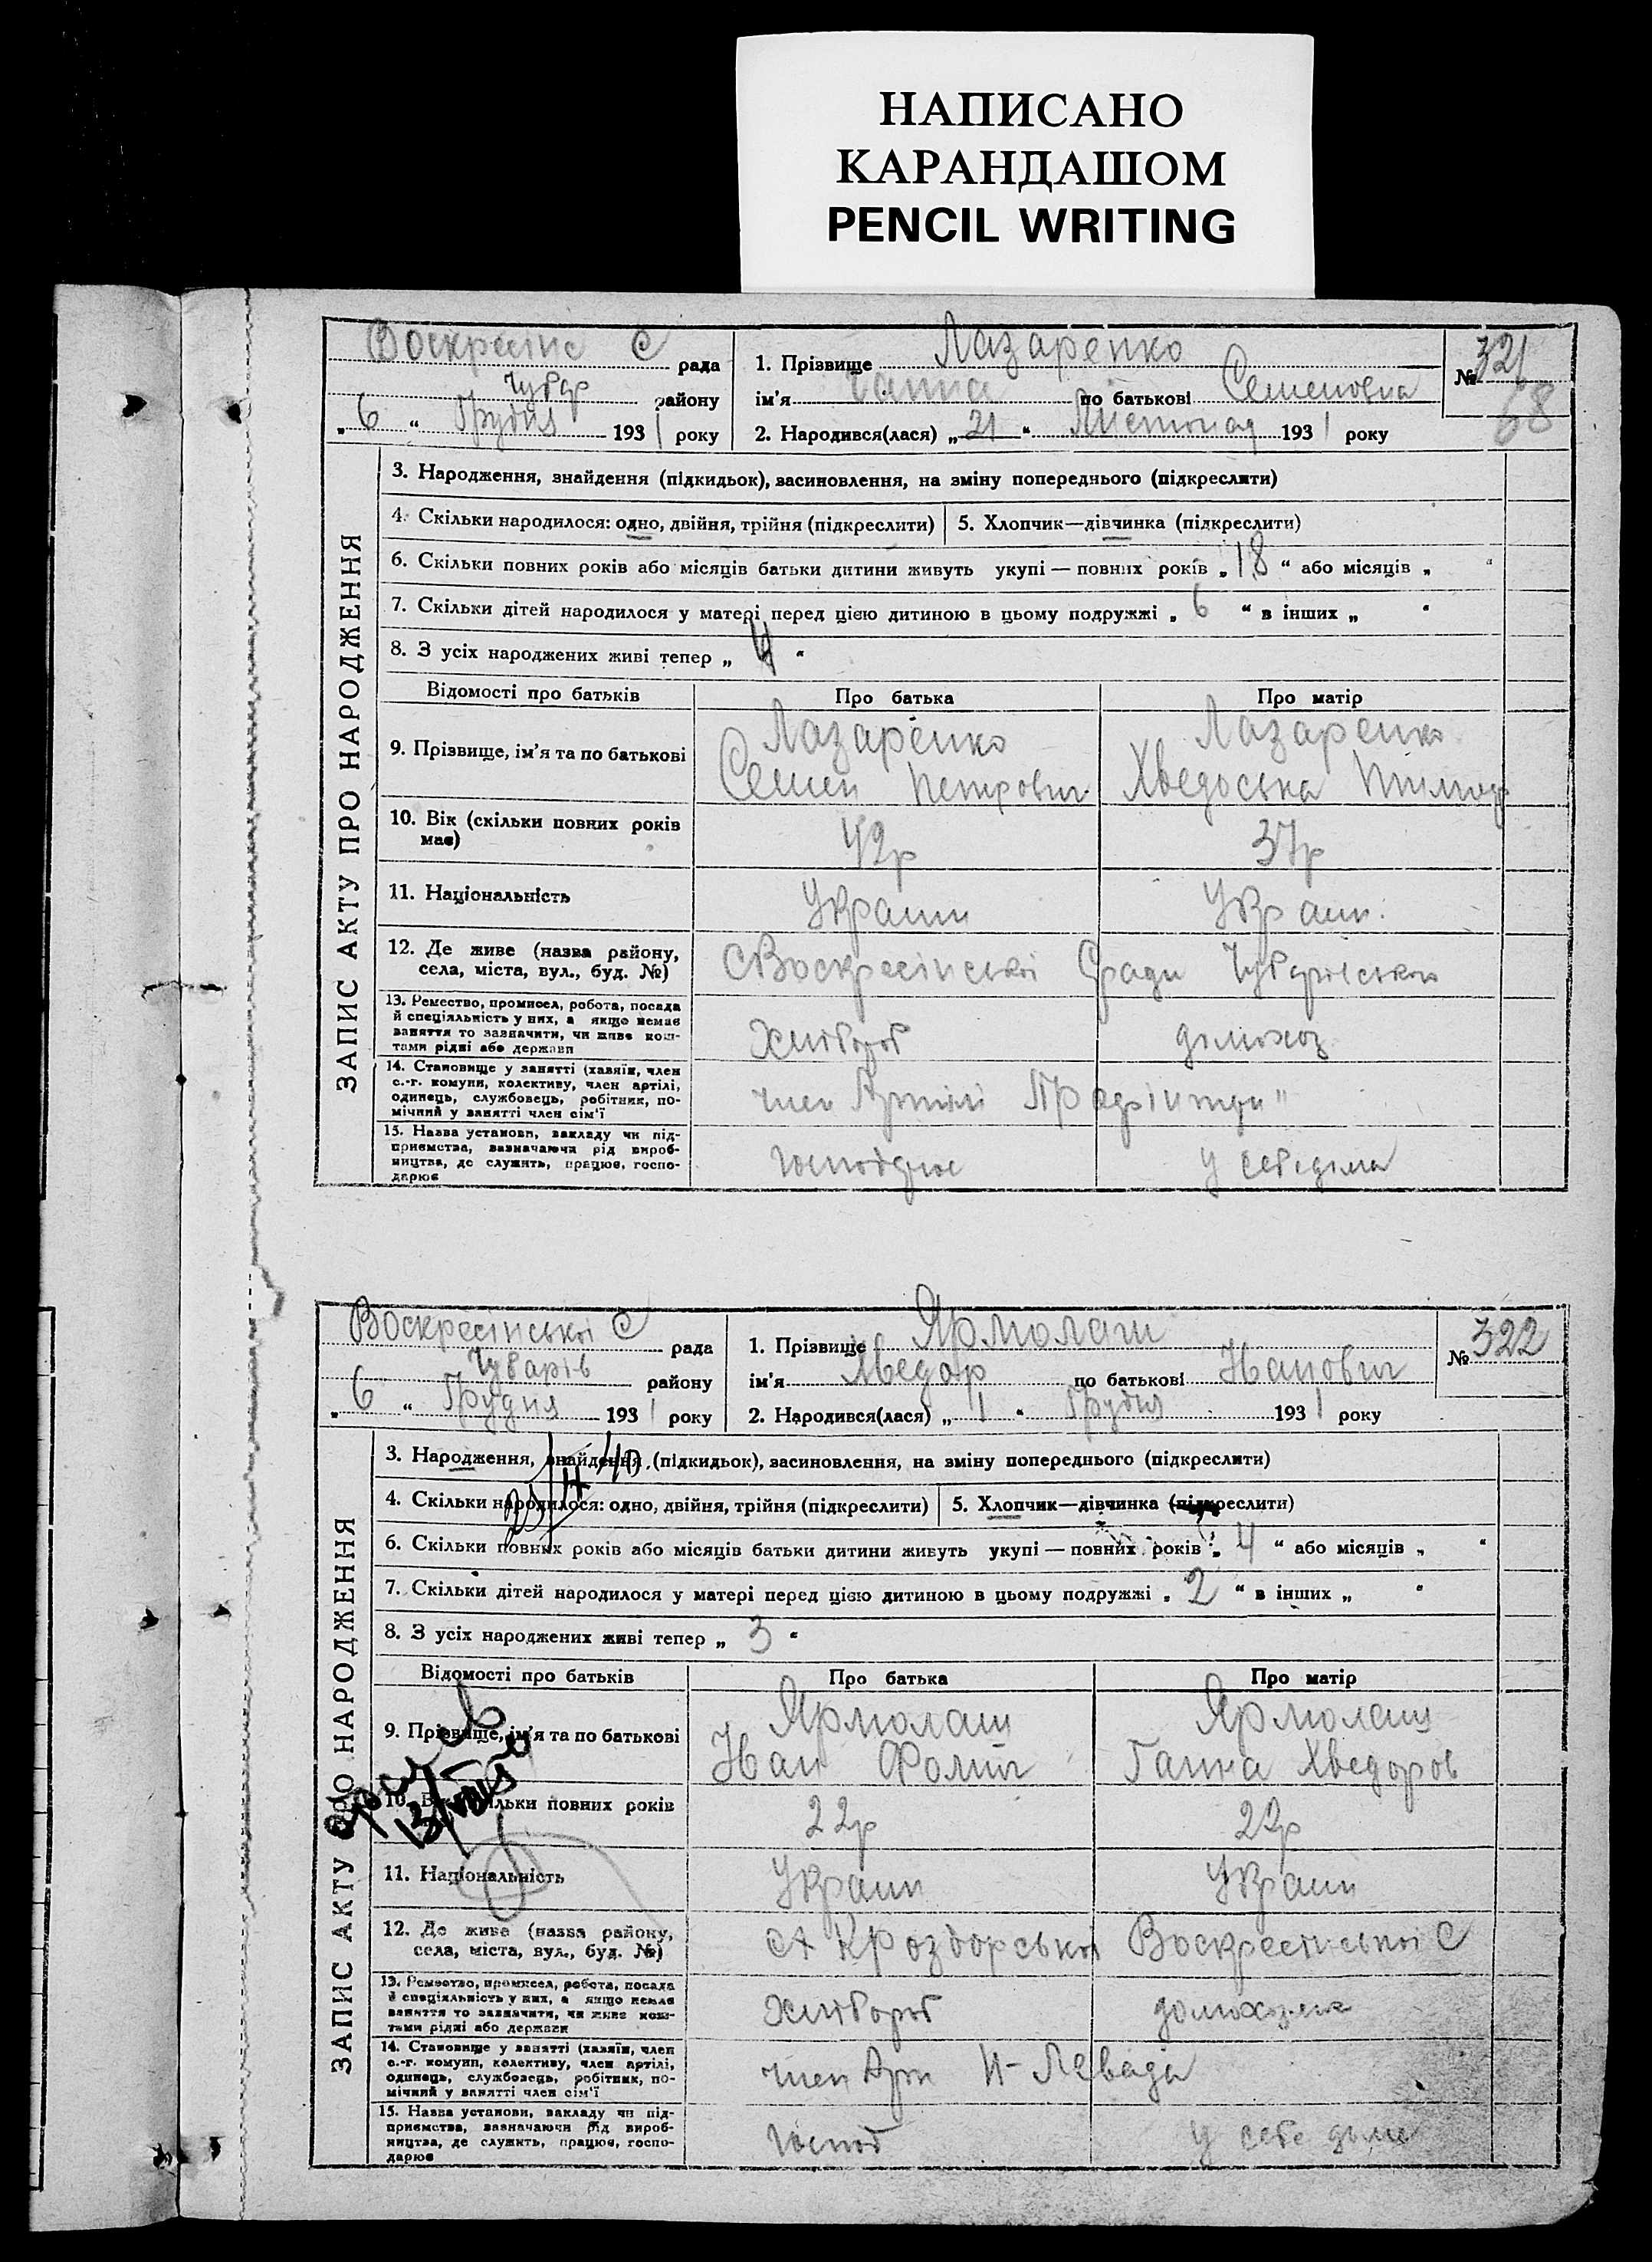 НАПИСАНО
КАРАНДАШОМ
PENCIL WRITING
Воскресінс С рада
Чубар району
„6“ Грудня 1931 року
1. Прізвище Лазаренко
ім'я Ганна по батькові Семеновна
2. Народився(лася) „21“ Листопад 1931 року
№ 321
68
ЗАПИС АКТУ ПРО НАРОДЖЕННЯ
3. Народження, знайдення (підкидьок), засиновлення, на зміну попереднього (підкреслити)
4. Скільки народилося: одно, двійня, трійня (підкреслити) 5. Хлопчик—дівчинка (підкреслити)
6. Скільки повних років або місяців батьки дитини живуть укупі — повних років „18“ або місяців „ “
7. Скільки дітей народилося у матері перед цією дитиною в цьому подружжі „6“ в інших „ “
8. З усіх народжених живі тепер „4“
Відомості про батьків Про батька Про матір
9. Прізвище, ім'я та по батькові
Лазаренко Лазаренко
Семен Петрович Хведоська
10. Вік (скільки повних років має) 42р 37р
11. Національність Украин Украин.
12. Де живе (назва району, села, міста, вул., буд. №)
СВоскресінської Сради Чубарівської
13. Ремество, промисел, робота, посада
й спеціяльність у них, а якщо немає
заняття то зазначити, чи живе кош-
тами рідні або держави
Хлібороб домохоз
14. Становище у занятті (хазяїн, член
с.-г. комуни, колективу, член артілі,
одинець, службовець, робітник, по-
мічний у занятті член сім'ї
член Артілі
15. Назва установи, закладу чи під-
приємства, зазначаючи рід вироб-
ництва, де служить, працює, госпо-
дарює
у себе дома
Воскресінської С рада
Чубарів району
„6“ Грудня 1931 року
1. Прізвище Ярмолаш
ім'я Хведор по батькові Иванович
2. Народився(лася) „1“ Грудня 1931 року
№ 322
ЗАПИС АКТУ ПРО НАРОДЖЕННЯ
3. Народження, знайдення (підкидьок), засиновлення, на зміну попереднього (підкреслити)
4. Скільки народилося: одно, двійня, трійня (підкреслити) 5. Хлопчик—дівчинка (підкреслити)
6. Скільки повних років або місяців батьки дитини живуть укупі — повних років „4“ або місяців „ “
7. Скільки дітей народилося у матері перед цією дитиною в цьому подружжі „2“ в інших „ “
8. З усіх народжених живі тепер „3“
Відомості про батьків Про батька Про матір
9. Прізвище, ім'я та по батькові
Ярмолаш Ярмолаш
Иван Фомич Ганна Хведоров
10. Вік (скільки повних років 22р 22р
11. Національність Украин Украин
12. Де живе (назва району, села, міста, вул., буд. №)
Воскресінської С
13. Ремество, промисел, робота, посада
й спеціяльність у них, а якщо немає
заняття то зазначити, чи живе кош-
тами рідні або держави
Хлібороб домохозяй
14. Становище у занятті (хазяїн, член
с.-г. комуни, колективу, член артілі,
одинець, службовець, робітник, по-
мічний у занятті член сім'ї
член Арт Н-Левада
15. Назва установи, закладу чи під-
приємства, зазначаючи рід вироб-
ництва, де служить, працює, госпо-
дарює
Господ у себе дома